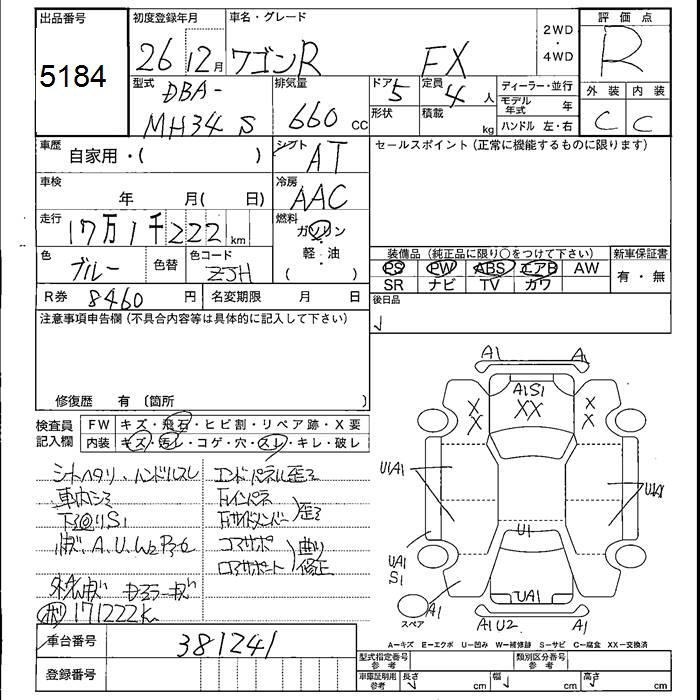 出品番号
5184
初度登録年月
26年12月
車名・グレード
ワゴンR FX
2WD
・
4WD
評価点
R
型式
DBA-
MH34S
排気量
660 CC
ドア 5
形状
定員 4 人
積載 kg
ディーラー・並行
モデル年式 年
ハンドル 左・右
外装 内装
C C
車歴
自家用・( )
シフト
AT
セールスポイント(正常に機能するものに限ります)
車検
年 月( 日)
冷房
AAC
走行
17万1千222 km
燃料
ガソリン
・
軽・油
( )
色
ブルー
色替
色コード
ZJH
装備品(純正品に限り○をつけて下さい)
PS PW ABS エアB AW
SR ナビ TV カワ
新車保証書
有・無
R券 8460 円
名変期限 月 日
後日品
注意事項申告欄(不具合内容等は具体的に記入して下さい)
修復歴 有 〔箇所 〕
検査員
記入欄
FW キズ・飛石・ヒビ割・リペア跡・X要
内装 キズ・汚レ・コゲ・穴・スレ・キレ・破レ
シートヘタリ、ハンドルスレ
車内シミ
下回りS1
小キズ、A、U、W2
171222K
エンドパネル歪ミ
コアサポ
コアサポート
曲り
修正
歪ミ
A1 A1
A1S1
XX
X
X
X
X
U1A1
U1
UA1
S1
UA1
A1
A1U2 A1
スペア
A−キズ E−エクボ U−凹み W−補修跡 S−サビ C−腐食 XX−交換済
車台番号
381241
登録番号
型式指定番号
参考
類別区分番号
参考
車庫証明用
参考
長さ cm
幅 cm
高さ cm